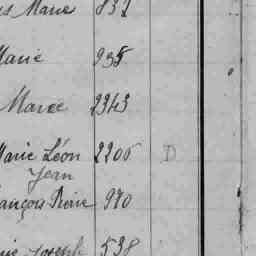 Marie 832
Marie 935
Maree 2343
Marie Léon 2206 D
Jean
ançois Pierre 970
Joseph 538